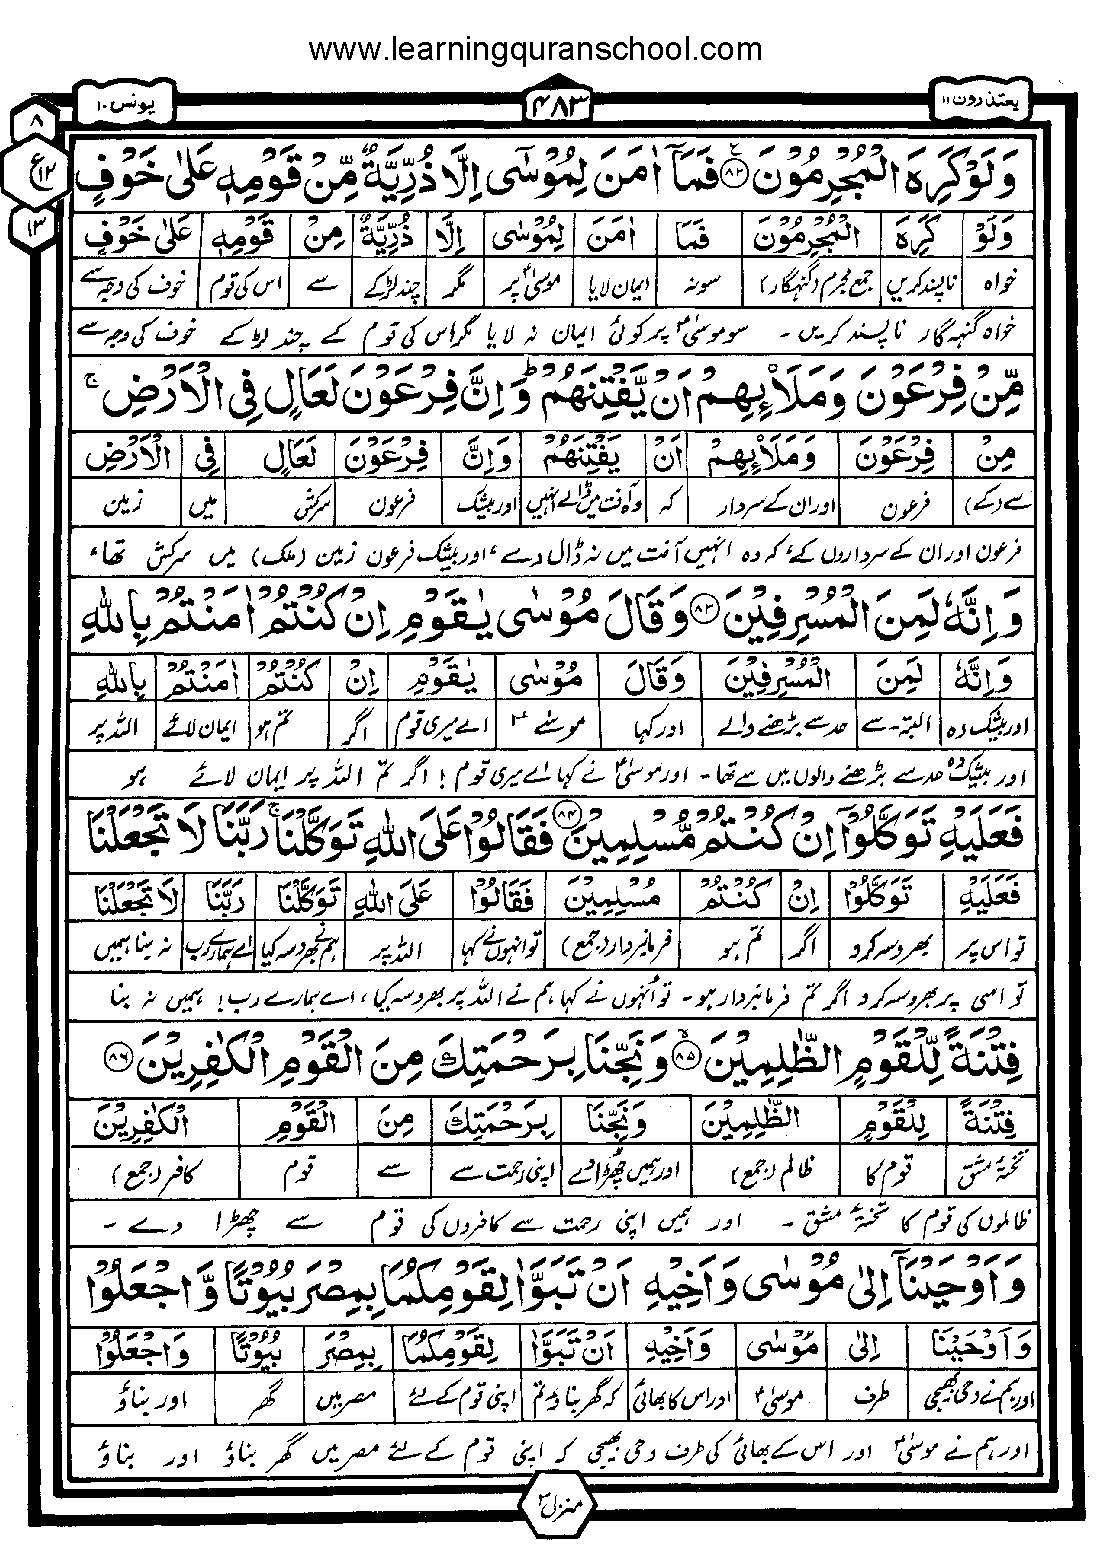 www.learningquranschool.com
یعتذرون ۱۱ ۴۸۳ یونس ۱۰
۸
ع ۱۲
۱۳
وَلَوْ كَرِهَ الْمُجْرِمُوْنَ ۸۲ فَمَاۤ اٰمَنَ لِمُوْسٰۤى اِلَّا ذُرِّيَّةٌ مِّنْ قَوْمِهٖ عَلٰى خَوْفٍ
وَلَوْ كَرِهَ الْمُجْرِمُوْنَ فَمَا اٰمَنَ لِمُوْسٰۤى اِلَّا ذُرِّيَّةٌ مِنْ قَوْمِهٖ عَلٰى خَوْفٍ
خواہ ناپسند کریں جمع مجرم (گنہگار) سو نہ ایمان لایا موسیٰؑ پر مگر چند لڑکے سے اس کی قوم خوف کی وجہ سے
خواہ گنہگار ناپسند کریں ۔ سو موسیٰؑ پر کوئی ایمان نہ لایا مگر اس کی قوم کے چند لڑکے خوف کی وجہ سے
مِّنْ فِرْعَوْنَ وَمَلَا۟ئِهِمْ اَنْ يَّفْتِنَهُمْ ؕ وَاِنَّ فِرْعَوْنَ لَعَالٍ فِى الْاَرْضِ ۚ
مِنْ فِرْعَوْنَ وَمَلَا۟ئِهِمْ اَنْ يَفْتِنَهُمْ وَاِنَّ فِرْعَوْنَ لَعَالٍ فِى الْاَرْضِ
سے (کے) فرعون اور ان کے سردار کہ وہ آفت میں ڈالے انہیں اور بیشک فرعون سرکش میں زمین
فرعون اور ان کے سرداروں کے، کہ وہ انہیں آفت میں نہ ڈال دے، اور بیشک فرعون زمین (ملک) میں سرکش تھا،
وَاِنَّهٗ لَمِنَ الْمُسْرِفِيْنَ ۸۳ وَقَالَ مُوْسٰى يٰقَوْمِ اِنْ كُنْتُمْ اٰمَنْتُمْ بِاللّٰهِ
وَاِنَّهٗ لَمِنَ الْمُسْرِفِيْنَ وَقَالَ مُوْسٰى يٰقَوْمِ اِنْ كُنْتُمْ اٰمَنْتُمْ بِاللّٰهِ
اور بیشک وہ البتہ - سے حد سے بڑھنے والے اور کہا موسیٰؑ اے میری قوم اگر تم ہو ایمان لائے اللہ پر
اور بیشک وہ حد سے بڑھنے والوں میں سے تھا ۔ اور موسیٰؑ نے کہا اے میری قوم! اگر تم اللہ پر ایمان لائے ہو
فَعَلَيْهِ تَوَكَّلُوْۤا اِنْ كُنْتُمْ مُّسْلِمِيْنَ ۸۴ فَقَالُوْا عَلَى اللّٰهِ تَوَكَّلْنَا ۚ رَبَّنَا لَا تَجْعَلْنَا
فَعَلَيْهِ تَوَكَّلُوْا اِنْ كُنْتُمْ مُسْلِمِيْنَ فَقَالُوْا عَلَى اللّٰهِ تَوَكَّلْنَا رَبَّنَا لَا تَجْعَلْنَا
تو اس پر بھروسہ کرو اگر تم ہو فرمانبردار (جمع) تو انہوں نے کہا اللہ پر ہم نے بھروسہ کیا اے ہمارے رب نہ بنا ہمیں
تو اسی پر بھروسہ کرو اگر تم فرمانبردار ہو ۔ تو اُنہوں نے کہا ہم نے اللہ پر بھروسہ کیا، اے ہمارے رب! ہمیں نہ بنا
فِتْنَةً لِّلْقَوْمِ الظّٰلِمِيْنَ ۸۵ وَنَجِّنَا بِرَحْمَتِكَ مِنَ الْقَوْمِ الْكٰفِرِيْنَ ۸۶
فِتْنَةً لِلْقَوْمِ الظّٰلِمِيْنَ وَنَجِّنَا بِرَحْمَتِكَ مِنَ الْقَوْمِ الْكٰفِرِيْنَ
تختۂ مشق قوم کا ظالم (جمع) اور ہمیں چھڑا دے اپنی رحمت سے سے قوم کافر (جمع)
ظالموں کی قوم کا تختۂ مشق ۔ اور ہمیں اپنی رحمت سے کافروں کی قوم سے چھڑا دے ۔
وَاَوْحَيْنَاۤ اِلٰى مُوْسٰى وَاَخِيْهِ اَنْ تَبَوَّاٰ لِقَوْمِكُمَا بِمِصْرَ بُيُوْتًا وَّاجْعَلُوْا
وَاَوْحَيْنَا اِلٰى مُوْسٰى وَاَخِيْهِ اَنْ تَبَوَّاٰ لِقَوْمِكُمَا بِمِصْرَ بُيُوْتًا وَاجْعَلُوْا
اور ہم نے وحی بھیجی طرف موسیٰؑ اور اس کا بھائی کہ گھر بناؤ تم اپنی قوم کے لئے مصر میں گھر اور بناؤ
اور ہم نے موسیٰؑ اور اس کے بھائی کی طرف وحی بھیجی کہ اپنی قوم کے لئے مصر میں گھر بناؤ اور بناؤ
منزل ۳